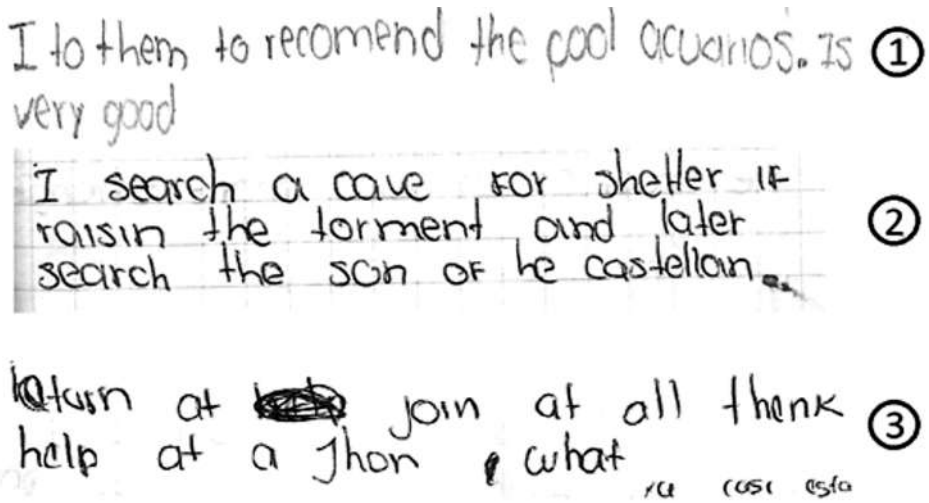 I to them to recomend the cool acuarios. Is ①
very good
I search a cave for shelter if
raisin the torment and later ②
search the son of he castellan.
return at join at all thenk ③
help at a Jhon, what
ya casi esta